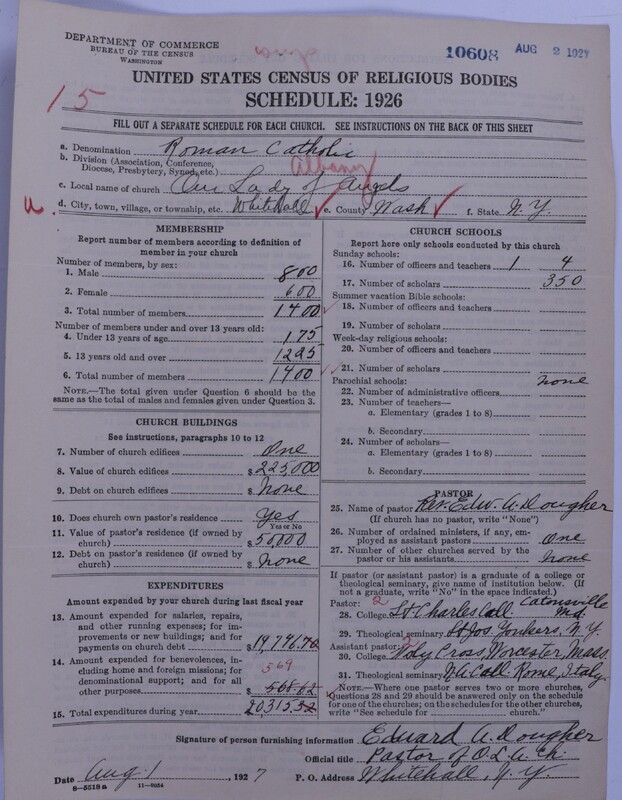 DEPARTMENT OF COMMERCE
BUREAU OF THE CENSUS
WASHINGTON
10608 AUG 2 1927
UNITED STATES CENSUS OF RELIGIOUS BODIES
SCHEDULE: 1926
15
FILL OUT A SEPARATE SCHEDULE FOR EACH CHURCH. SEE INSTRUCTIONS ON THE BACK OF THIS SHEET
a. Denomination Roman Catholic
b. Division (Association, Conference, Diocese, Presbytery, Synod, etc.) Albany
c. Local name of church Our Lady of Angels
d. City, town, village, or township, etc. Whitehall e. County Wash f. State N.Y.
MEMBERSHIP
Report number of members according to definition of
member in your church
Number of members, by sex:
1. Male 800
2. Female 600
3. Total number of members 1400
Number of members under and over 13 years old:
4. Under 13 years of age 175
5. 13 years old and over 1225
6. Total number of members 1400
NOTE.—The total given under Question 6 should be
same as the total of males and females given under Question 3.
CHURCH BUILDINGS
See instructions, paragraphs 10 to 12
7. Number of church edifices One
8. Value of church edifices $ 225,000
9. Debt on church edifices $ None
10. Does church own pastor's residence Yes
Yes or No
11. Value of pastor's residence (if owned by
church) $ 50,000
12. Debt on pastor's residence (if owned by
church) $ None
EXPENDITURES
Amount expended by your church during last fiscal year
13. Amount expended for salaries, repairs,
and other running expenses; for im-
provements or new buildings; and for
payments on church debt $ 19,746.70
14. Amount expended for benevolences,
including home and foreign missions; for
denominational support; and for all
other purposes $ 568.82
569
15. Total expenditures during year 20315.52
CHURCH SCHOOLS
Report here only schools conducted by this church
Sunday schools:
16. Number of officers and teachers 1 4
17. Number of scholars 350
Summer vacation Bible schools:
18. Number of officers and teachers
19. Number of scholars
Week-day religious schools:
20. Number of officers and teachers
21. Number of scholars
Parochial schools: none
22. Number of administrative officers
23. Number of teachers—
a. Elementary (grades 1 to 8)
b. Secondary
24. Number of scholars—
a. Elementary (grades 1 to 8)
b. Secondary
PASTOR
25. Name of pastor Rev. Edw. A. Dougher
(If church has no pastor, write "None")
26. Number of ordained ministers, if any, em-
ployed as assistant pastors One
27. Number of other churches served by the
pastor or his assistants None
If pastor (or assistant pastor) is a graduate of a college or
theological seminary, give name of institution below. (If
not a graduate, write "No" in the space indicated.)
Pastor: 2
28. College St Charles Coll. Catonsville Md.
29. Theological seminary St Jos. Yonkers, N.Y.
Assistant pastor:
30. College Holy Cross, Worcester, Mass.
31. Theological seminary N.A. Coll. Rome, Italy.
NOTE.—Where one pastor serves two or more churches,
Questions 28 and 29 should be answered only on the schedule
for one of the churches; on the schedules for the other churches,
write "See schedule for church."
Signature of person furnishing information Edward A. Dougher
Official title Pastor of O L A Ch.
Date Aug. 1, 1927 P. O. Address Whitehall, N.Y.
8—5518a 11—9054